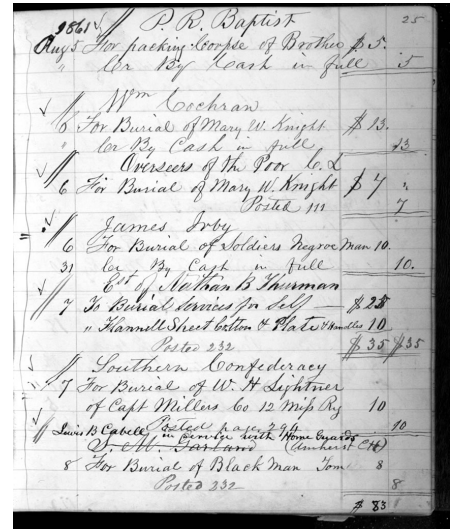 25
1861 P. R. Baptist
Aug 5 For packing Corpse of Brother $5.
" Cr By Cash in full 5
Wm Cochran
6 For Burial of Mary W. Knight $13.
" Cr By Cash in full 13
Overseers of the Poor C. L
6 For Burial of Mary W. Knight $7 "
Posted 111 7
James Irby
6 For Burial of Soldiers Negroe Man 10.
31 Cr By Cash in full 10.
Est of Nathan B Thurman
7 To Burial Services for Self $25
" Flannell Sheet Cotton & Plate & Handles 10
Posted 232 $35 $35
Southern Confederacy
7 For Burial of W. H Lightner
of Capt Millers Co 12 Miss Rg 10
Posted page 294 10
Lewis B Cabell in Service with Home Guards
S. M. Garland (Amherst CH)
8 For Burial of Black Man Tom 8
Posted 232 8
$83